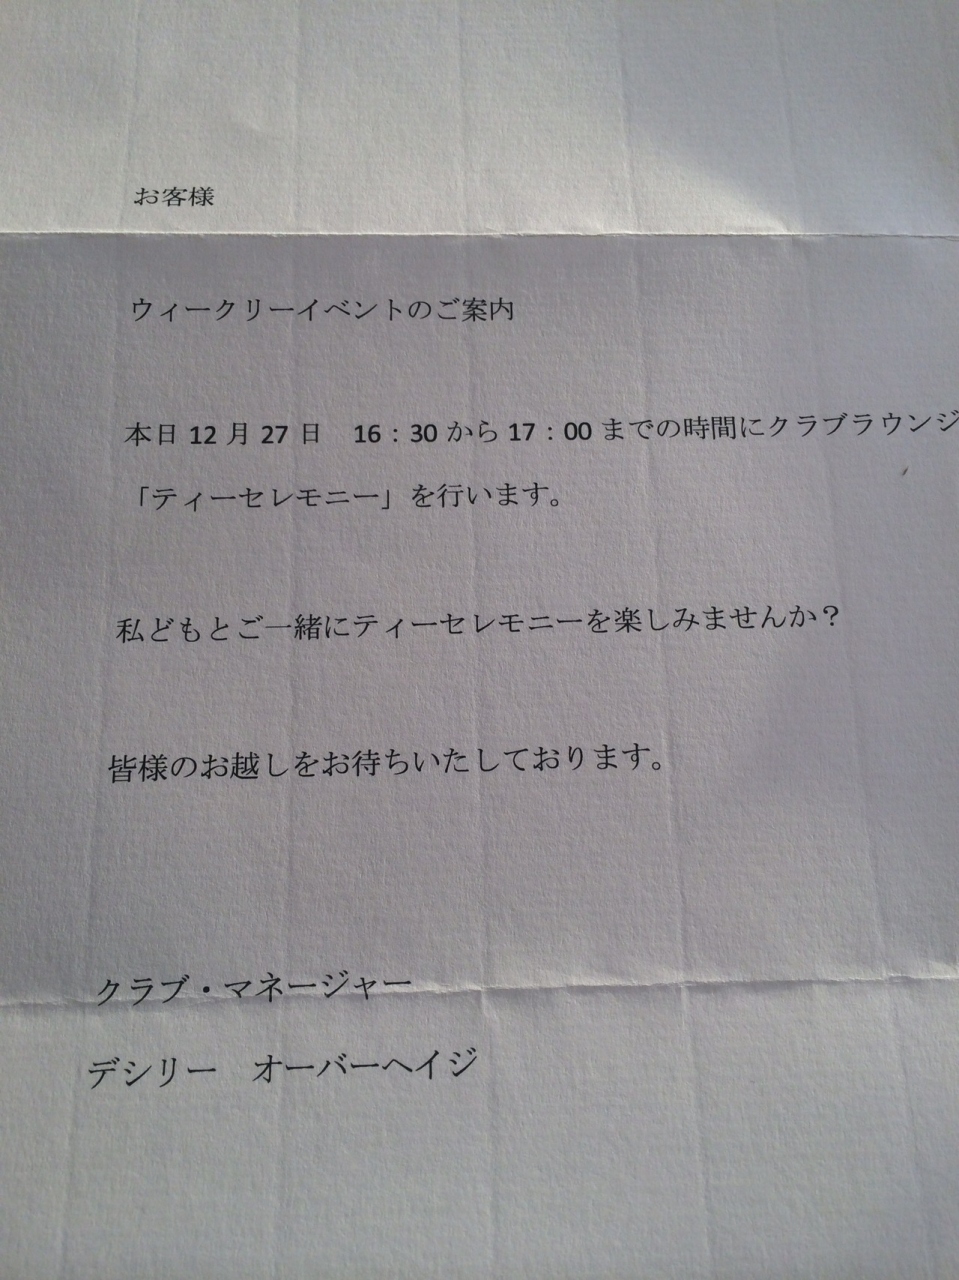 お客様
ウィークリーイベントのご案内
本日 12 月 27 日　16：30 から 17：00 までの時間にクラブラウンジ
「ティーセレモニー」を行います。
私どもとご一緒にティーセレモニーを楽しみませんか？
皆様のお越しをお待ちいたしております。
クラブ・マネージャー
デシリー　オーバーヘイジ